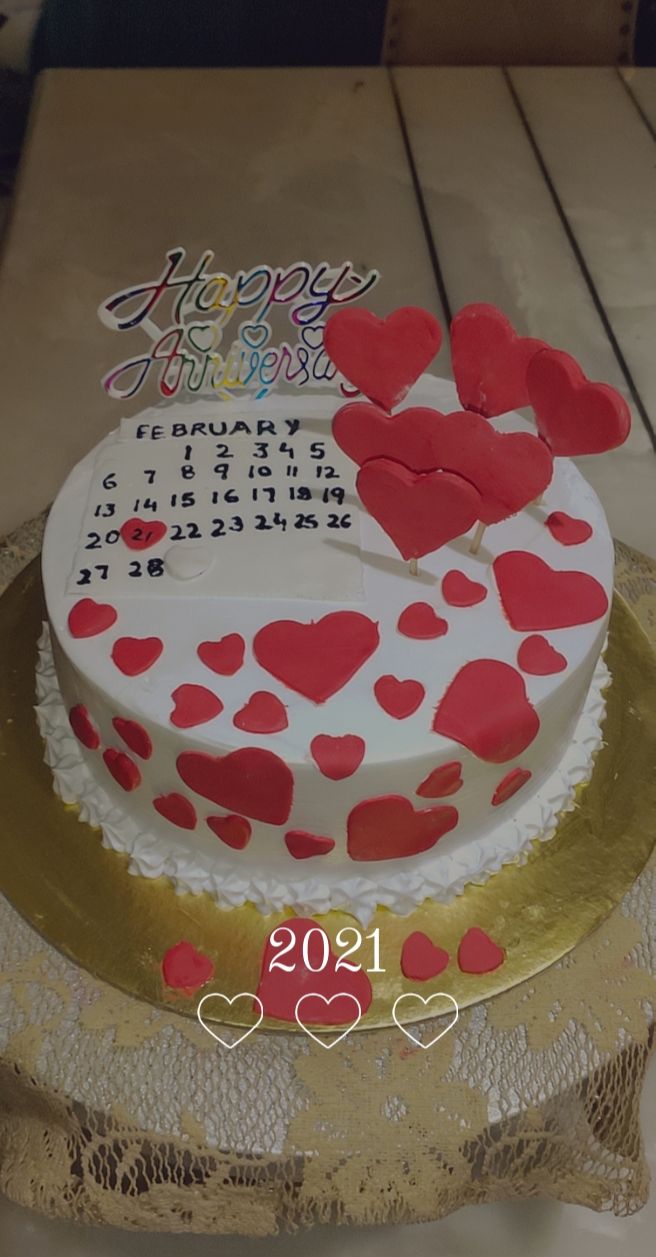 Happy
Anniversary
FEBRUARY
1 2 3 4 5
6 7 8 9 10 11 12
13 14 15 16 17 18 19
20 21 22 23 24 25 26
27 28
2021